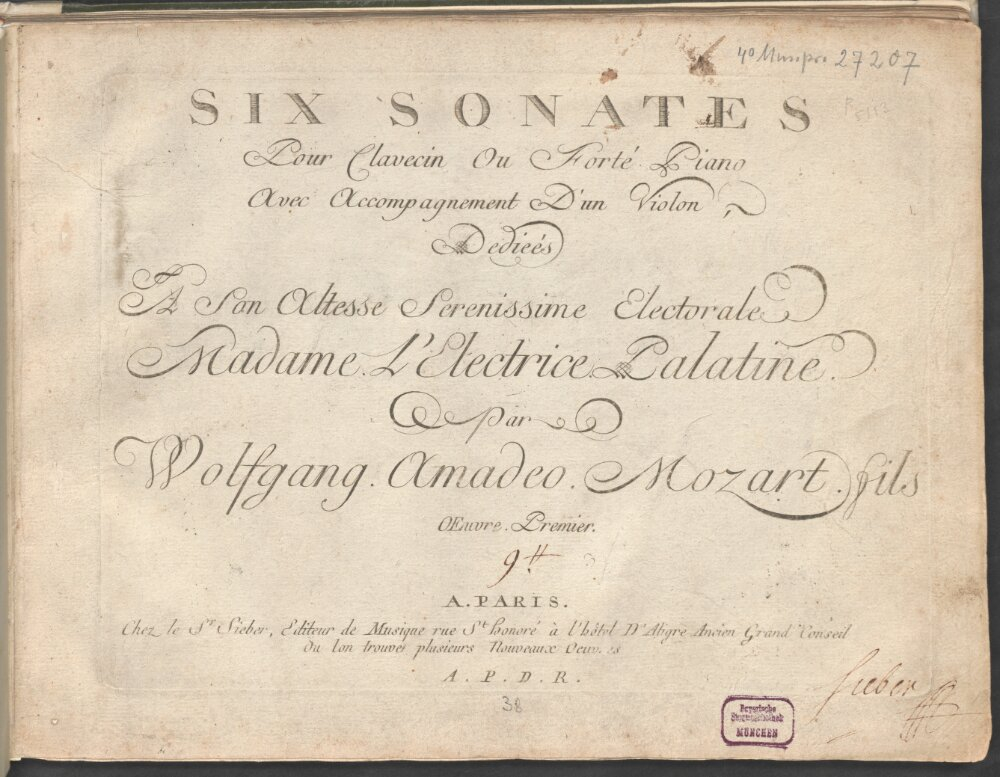 4º Mus.pr. 27207
SIX SONATES
Pour Clavecin Ou Forté Piano
Avec Accompagnement D'un Violon
Dedieés
A Son Altesse Serenissime Electorale
Madame L'Electrice Palatine.
par
Wolfgang. Amadeo. Mozart. fils
Œuvre. Premier.
9ᵗᵗ
A. PARIS.
Chez le Sʳ Sieber, Editeur de Musique rue Sᵗ honoré à l'hôtel D'Aligre Ancien Grand Conseil
Ou l'on trouve plusieurs Nouveaux Oeuvres
A. P. D. R.
Sieber
38
Bayerische
Staatsbibliothek
MÜNCHEN